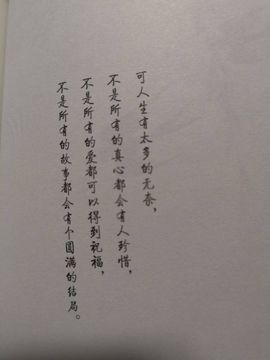 可人生有太多的无奈，
不是所有的真心都会有人珍惜，
不是所有的爱都可以得到祝福，
不是所有的故事都会有个圆满的结局。